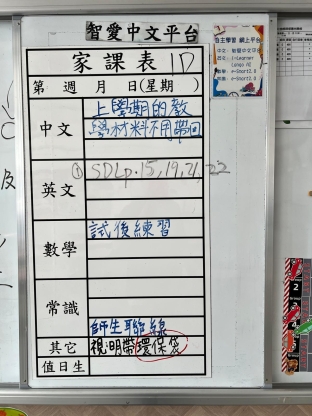 智愛中文平台
家課表 1D
第 週 月 日(星期 )
中文
上學期的教
學材料不用帶回
英文
① SDL p.15,19,21,22
數學
試後練習
常識
師生聯線
其它
視明帶環保袋
值日生
自主學習 網上平台